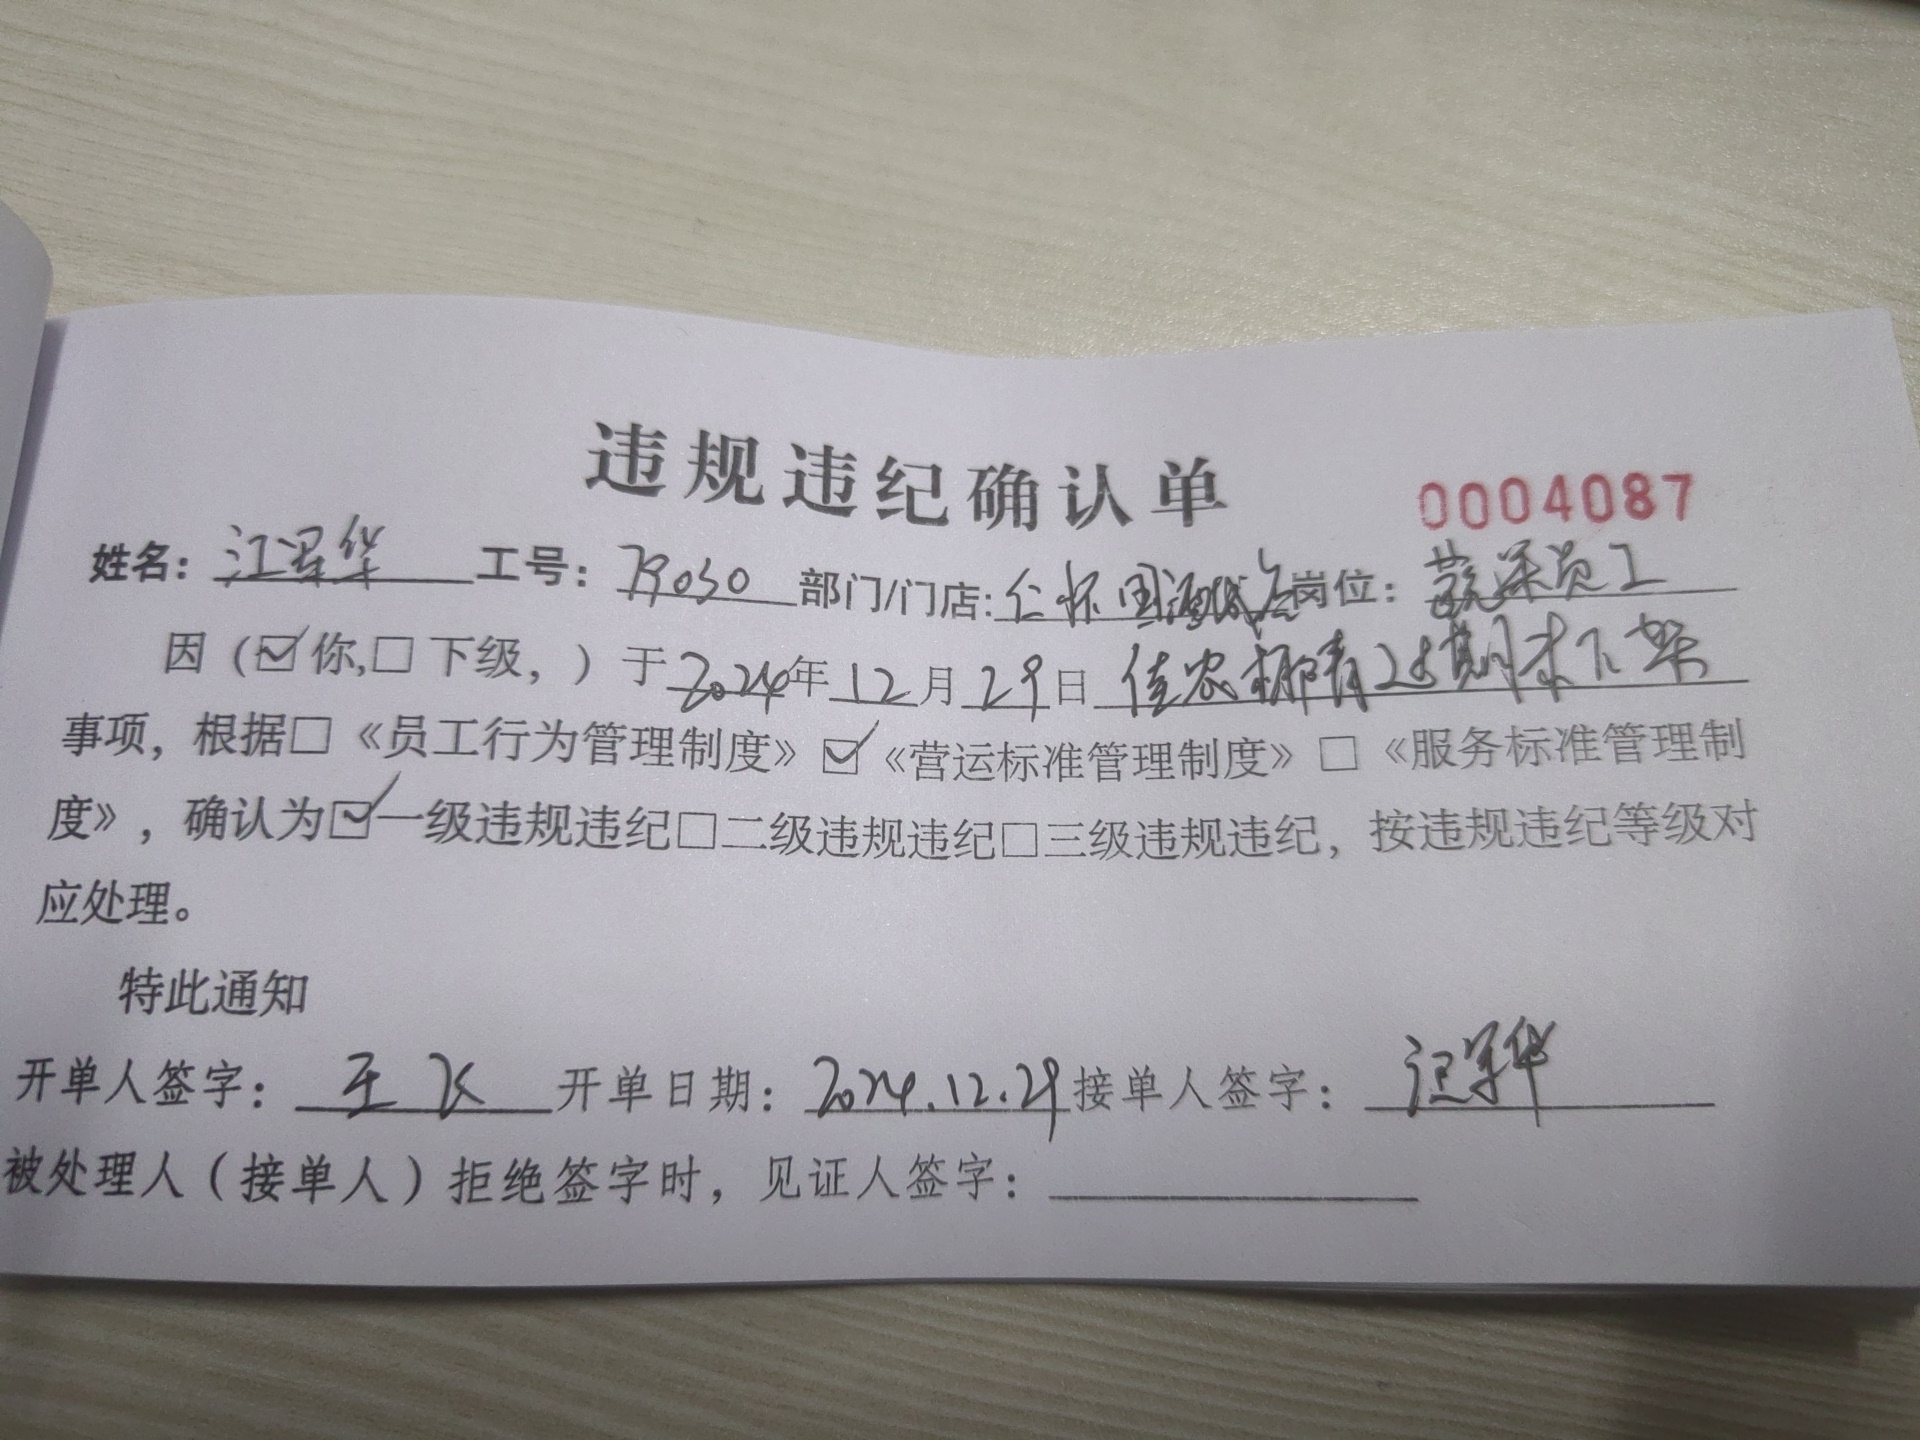 违规违纪确认单
0004087
姓名：江华 工号： 部门/门店：仁怀国酒城店 岗位：蔬果员工
因（☑你，□下级，）于2024年12月29日 佳农椰青过期未下架
事项，根据□《员工行为管理制度》☑《营运标准管理制度》□《服务标准管理制
度》，确认为☑一级违规违纪□二级违规违纪□三级违规违纪，按违规违纪等级对
应处理。
特此通知
开单人签字：王飞 开单日期：2024.12.29 接单人签字：江华
被处理人（接单人）拒绝签字时，见证人签字：